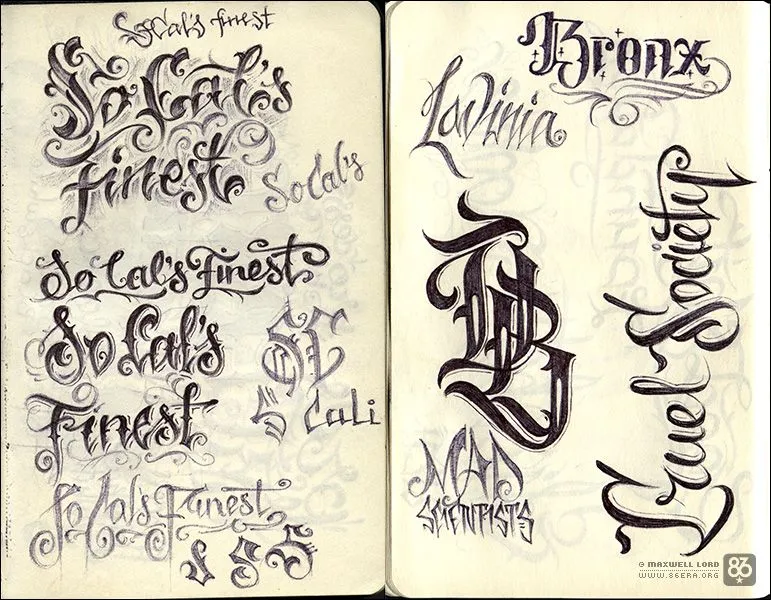 SoCal's finest
So Cal's
finest
So Cal's
So Cal's Finest
So Cal's
SC
S Cali
Finest
So Cal's Finest
S S S
Bronx
Lavinia
B
Cruel Society
MAD
SCIENTISTS
© MAXWELL LORD
WWW.86ERA.ORG
86